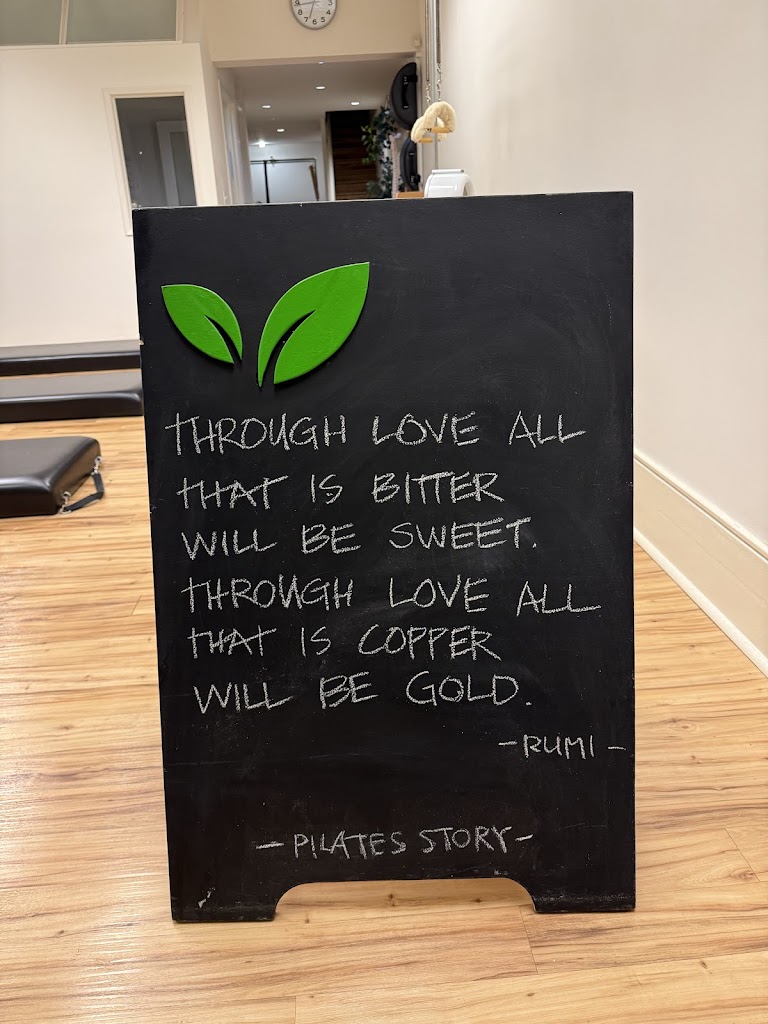 THROUGH LOVE ALL
THAT IS BITTER
WILL BE SWEET.
THROUGH LOVE ALL
THAT IS COPPER
WILL BE GOLD.
-RUMI-
-PILATES STORY-